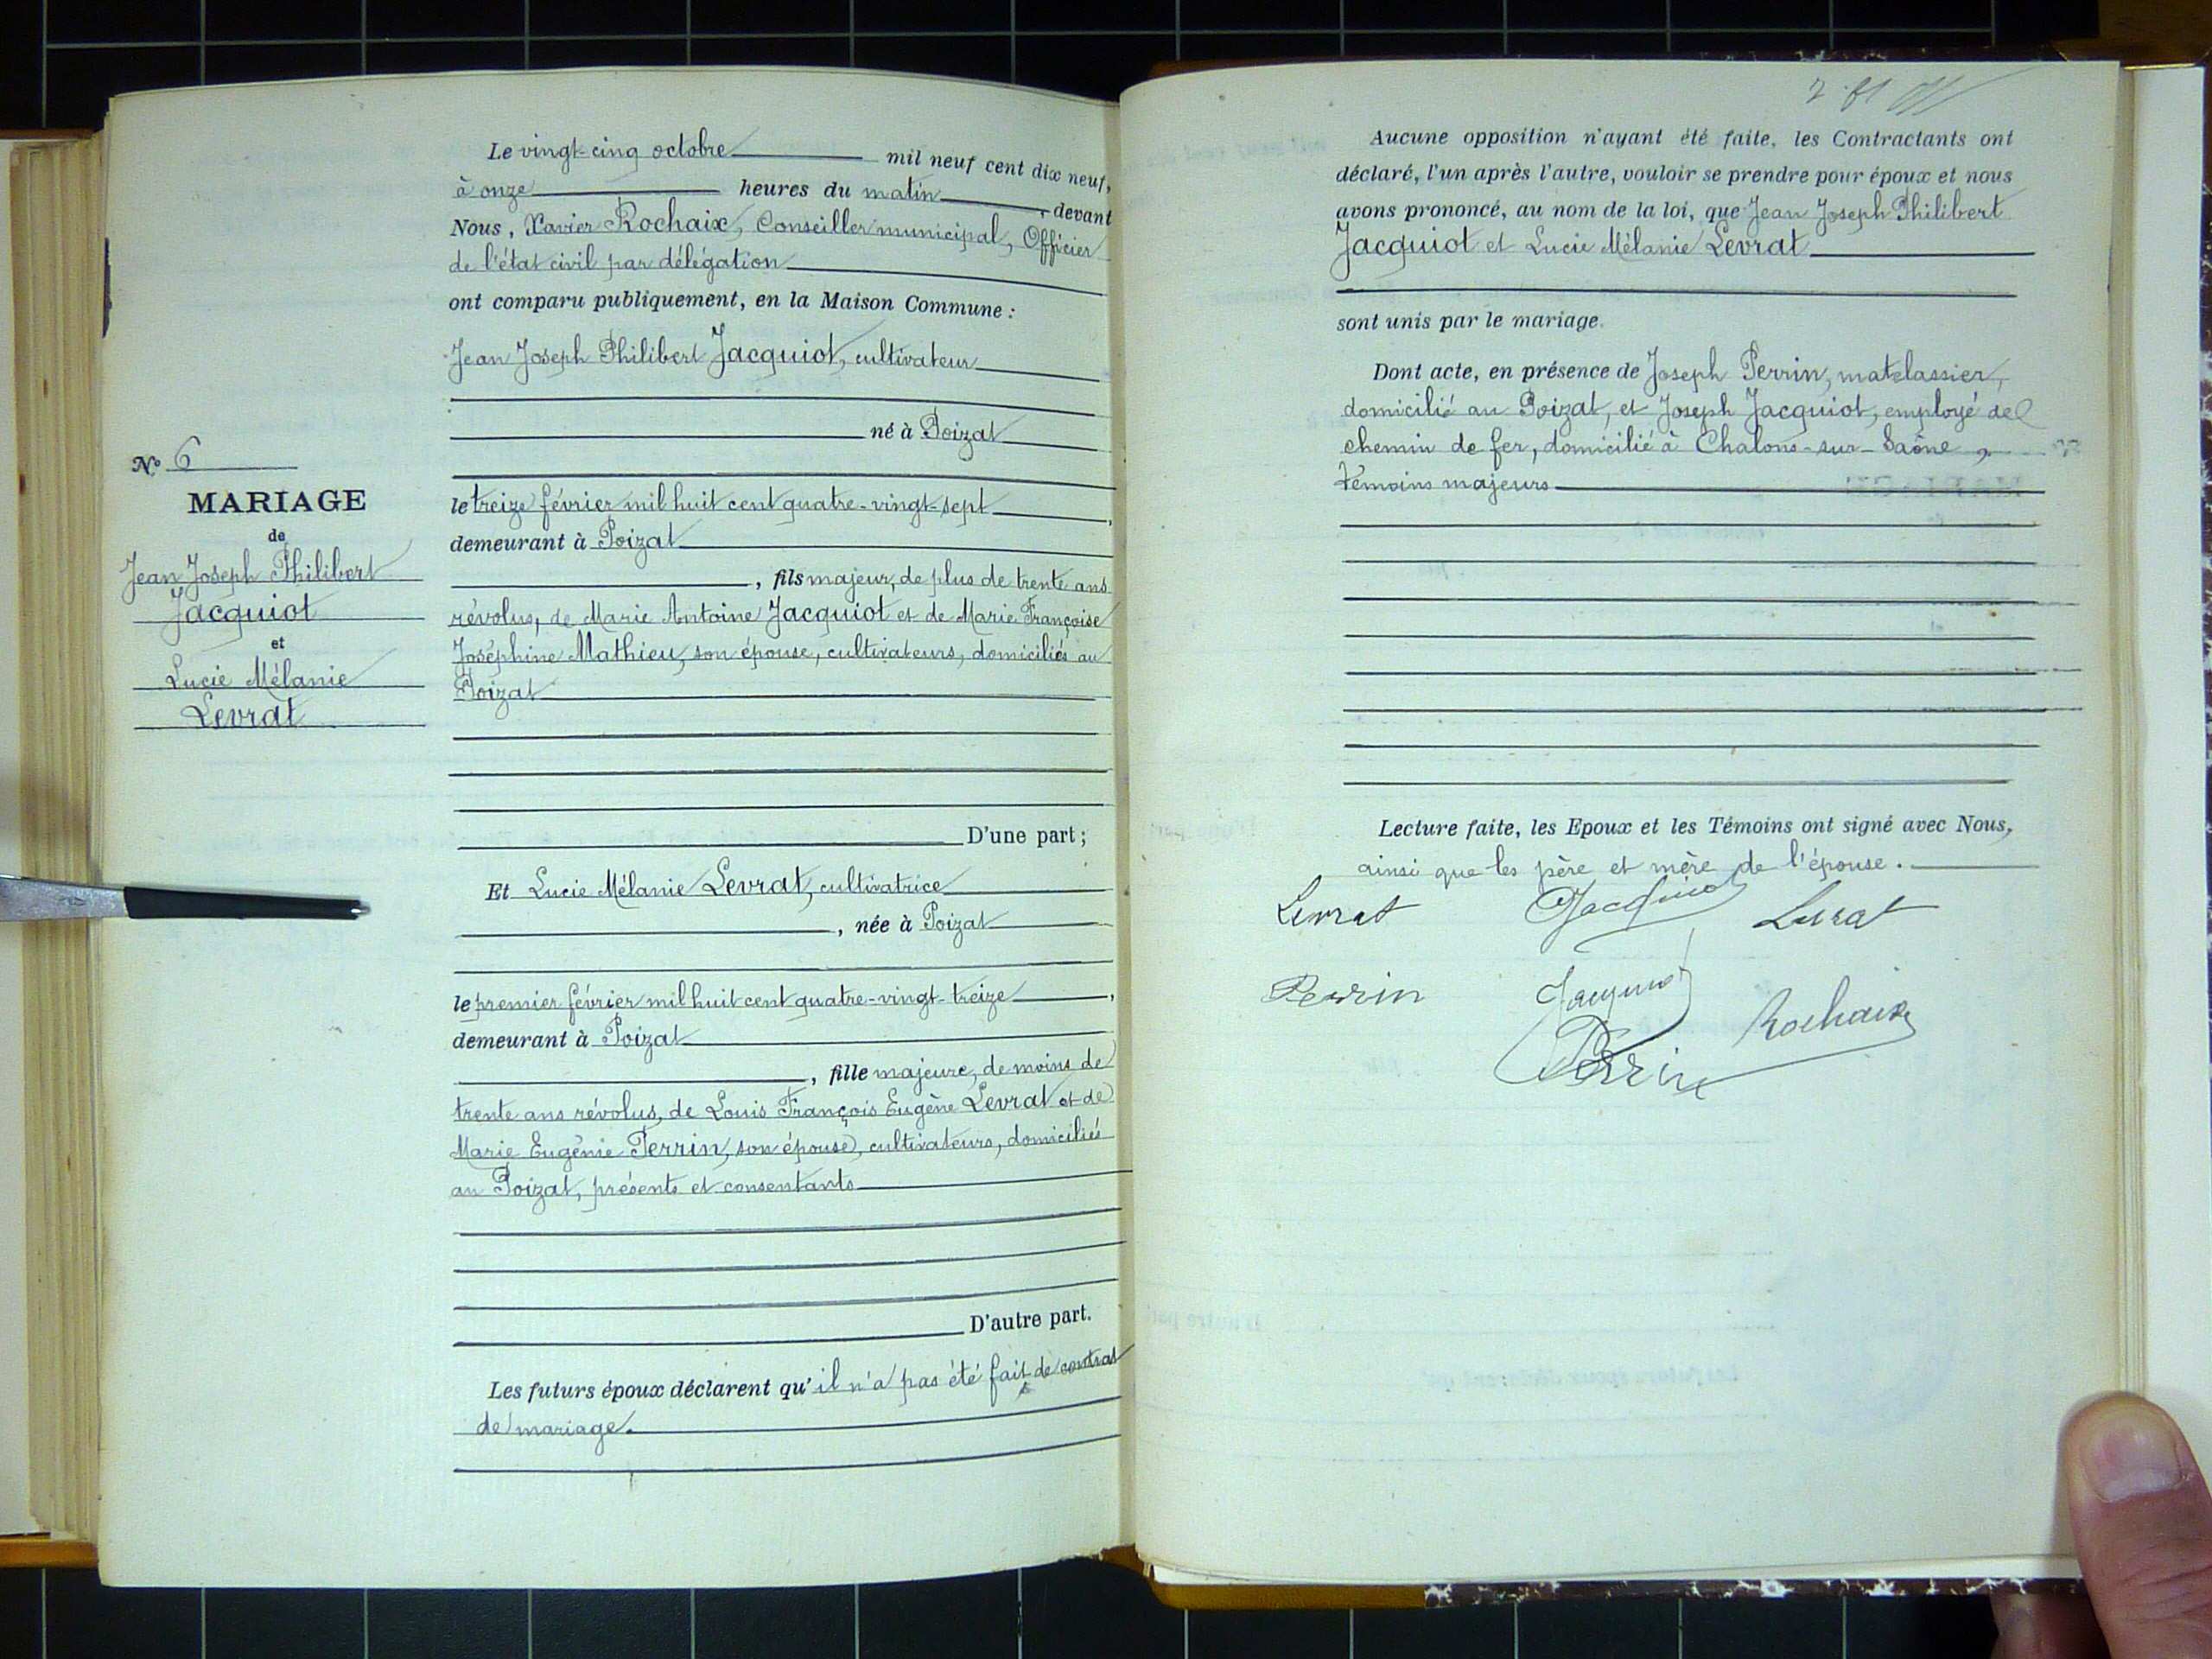 Le vingt-cinq octobre mil neuf cent dix neuf,
à onze heures du matin, devant
Nous, Xavier Rochaix, Conseiller municipal, Officier
de l'état civil par délégation
ont comparu publiquement, en la Maison Commune :
Jean Joseph Philibert Jacquiot, cultivateur
né à Poizat
le treize février mil huit cent quatre-vingt-sept,
demeurant à Poizat
, fils majeur, de plus de trente ans
révolus, de Marie Antoine Jacquiot et de Marie Françoise
Joséphine Mathieu, son épouse, cultivateurs, domiciliés au
Poizat
D'une part ;
Et Lucie Mélanie Levrat, cultivatrice
, née à Poizat
le premier février mil huit cent quatre-vingt-treize,
demeurant à Poizat
, fille majeure, de moins de
trente ans révolus, de Louis François Eugène Levrat et de
Marie Eugénie Perrin, son épouse, cultivateurs, domiciliés
au Poizat, présents et consentants
D'autre part.
Les futurs époux déclarent qu'il n'a pas été fait de contrat
de mariage.
N° 6
MARIAGE
de
Jean Joseph Philibert
Jacquiot
et
Lucie Mélanie
Levrat
Aucune opposition n'ayant été faite, les Contractants ont
déclaré, l'un après l'autre, vouloir se prendre pour époux et nous
avons prononcé, au nom de la loi, que Jean Joseph Philibert
Jacquiot et Lucie Mélanie Levrat
sont unis par le mariage.
Dont acte, en présence de Joseph Perrin, matelassier,
domicilié au Poizat, et Joseph Jacquiot, employé de
chemin de fer, domicilié à Chalons-sur-Saône,
témoins majeurs
Lecture faite, les Epoux et les Témoins ont signé avec Nous,
ainsi que les père et mère de l'épouse.
Levrat Jacquiot Levrat
Perrin Jacquiot Rochaix
Perrin